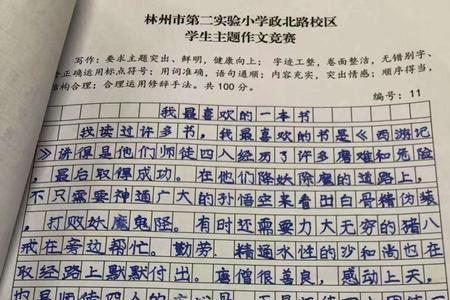 林州市第二实验小学政北路校区
学生主题作文竞赛
写作：要求主题突出、鲜明，健康向上； 字迹工整，卷面整洁，无错别字、
正确运用标点符号；用词准确，语句通顺；内容充实，突出情感；顺序得当，
结构合理；合理运用修辞手法。共 100 分。
编号：11
我最喜欢的一本书
我读过许多书，我最喜欢的书是《西游记
》讲得是他们师徒四人经历了许多磨难和危险
，最后取得成功。在他们降妖除魔的道路上，
不只需要神通广大的孙悟空来看出白骨精伪装
，打败妖魔鬼怪。有时还需要力大无穷的猪八
戒在旁边帮忙。勤劳．精通水性的沙和尚也在
取经路上默默付出。唐僧很善良，感动上天。
师徒四人的